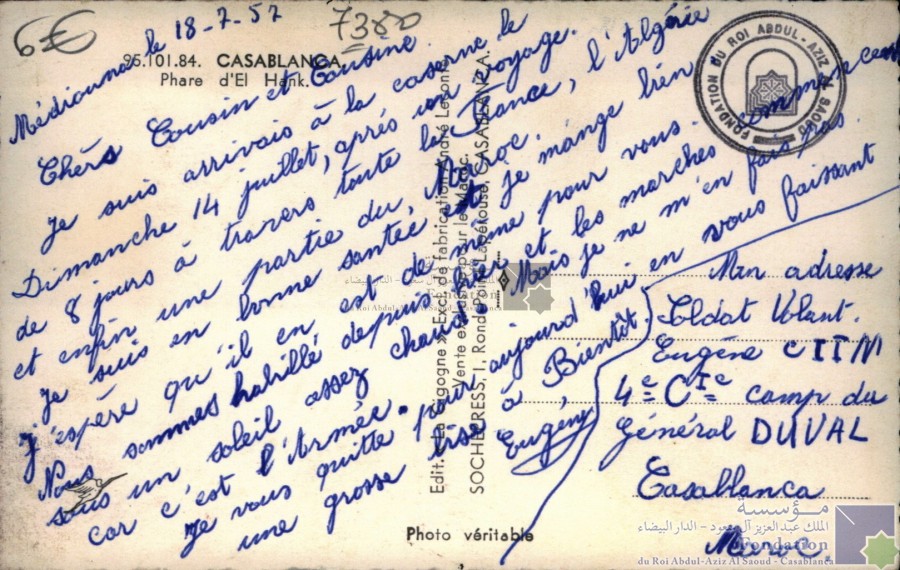 6€
7380
Médiouna le 18-7-57
95.101.84. CASABLANCA.
Phare d'El Hank.
Chèrs Cousin et Cousine
Je suis arrivais à la caserne le
Dimanche 14 juillet, après un voyage
de 8 jours à travers toute la France, l'Algérie
et enfin une partie du Maroc.
Je suis en bonne santée et je mange bien
J'espère qu'il en est de même pour vous.
Nous sommes habillé depuis hier et les marches commencent
sous un soleil assez chaud. Mais je ne m'en fais pas
car c'est l'Armée.
Je vous quitte pour aujourd'hui en vous faissant
une grosse bise à Bientôt.
Eugène
Edit. « La Cigogne » Excl. de fabrication André Leconte
Vente exclusive pour le Maroc
SOCHEPRESS, 1, Rond-Point Lapérouse, CASABLANCA.
Photo véritable
Mon adresse
Soldat Volant.
Eugène CIIM
4e CIe camp du
Général DUVAL
Casablanca
Maroc.
FONDATION DU ROI ABDUL-AZIZ AL SAOUD
مؤسسة
الملك عبد العزيز آل سعود - الدار البيضاء
Fondation
du Roi Abdul-Aziz Al Saoud - Casablanca
مؤسسة
الملك عبد العزيز آل سعود - الدار البيضاء
Fondation
du Roi Abdul-Aziz Al Saoud - Casablanca